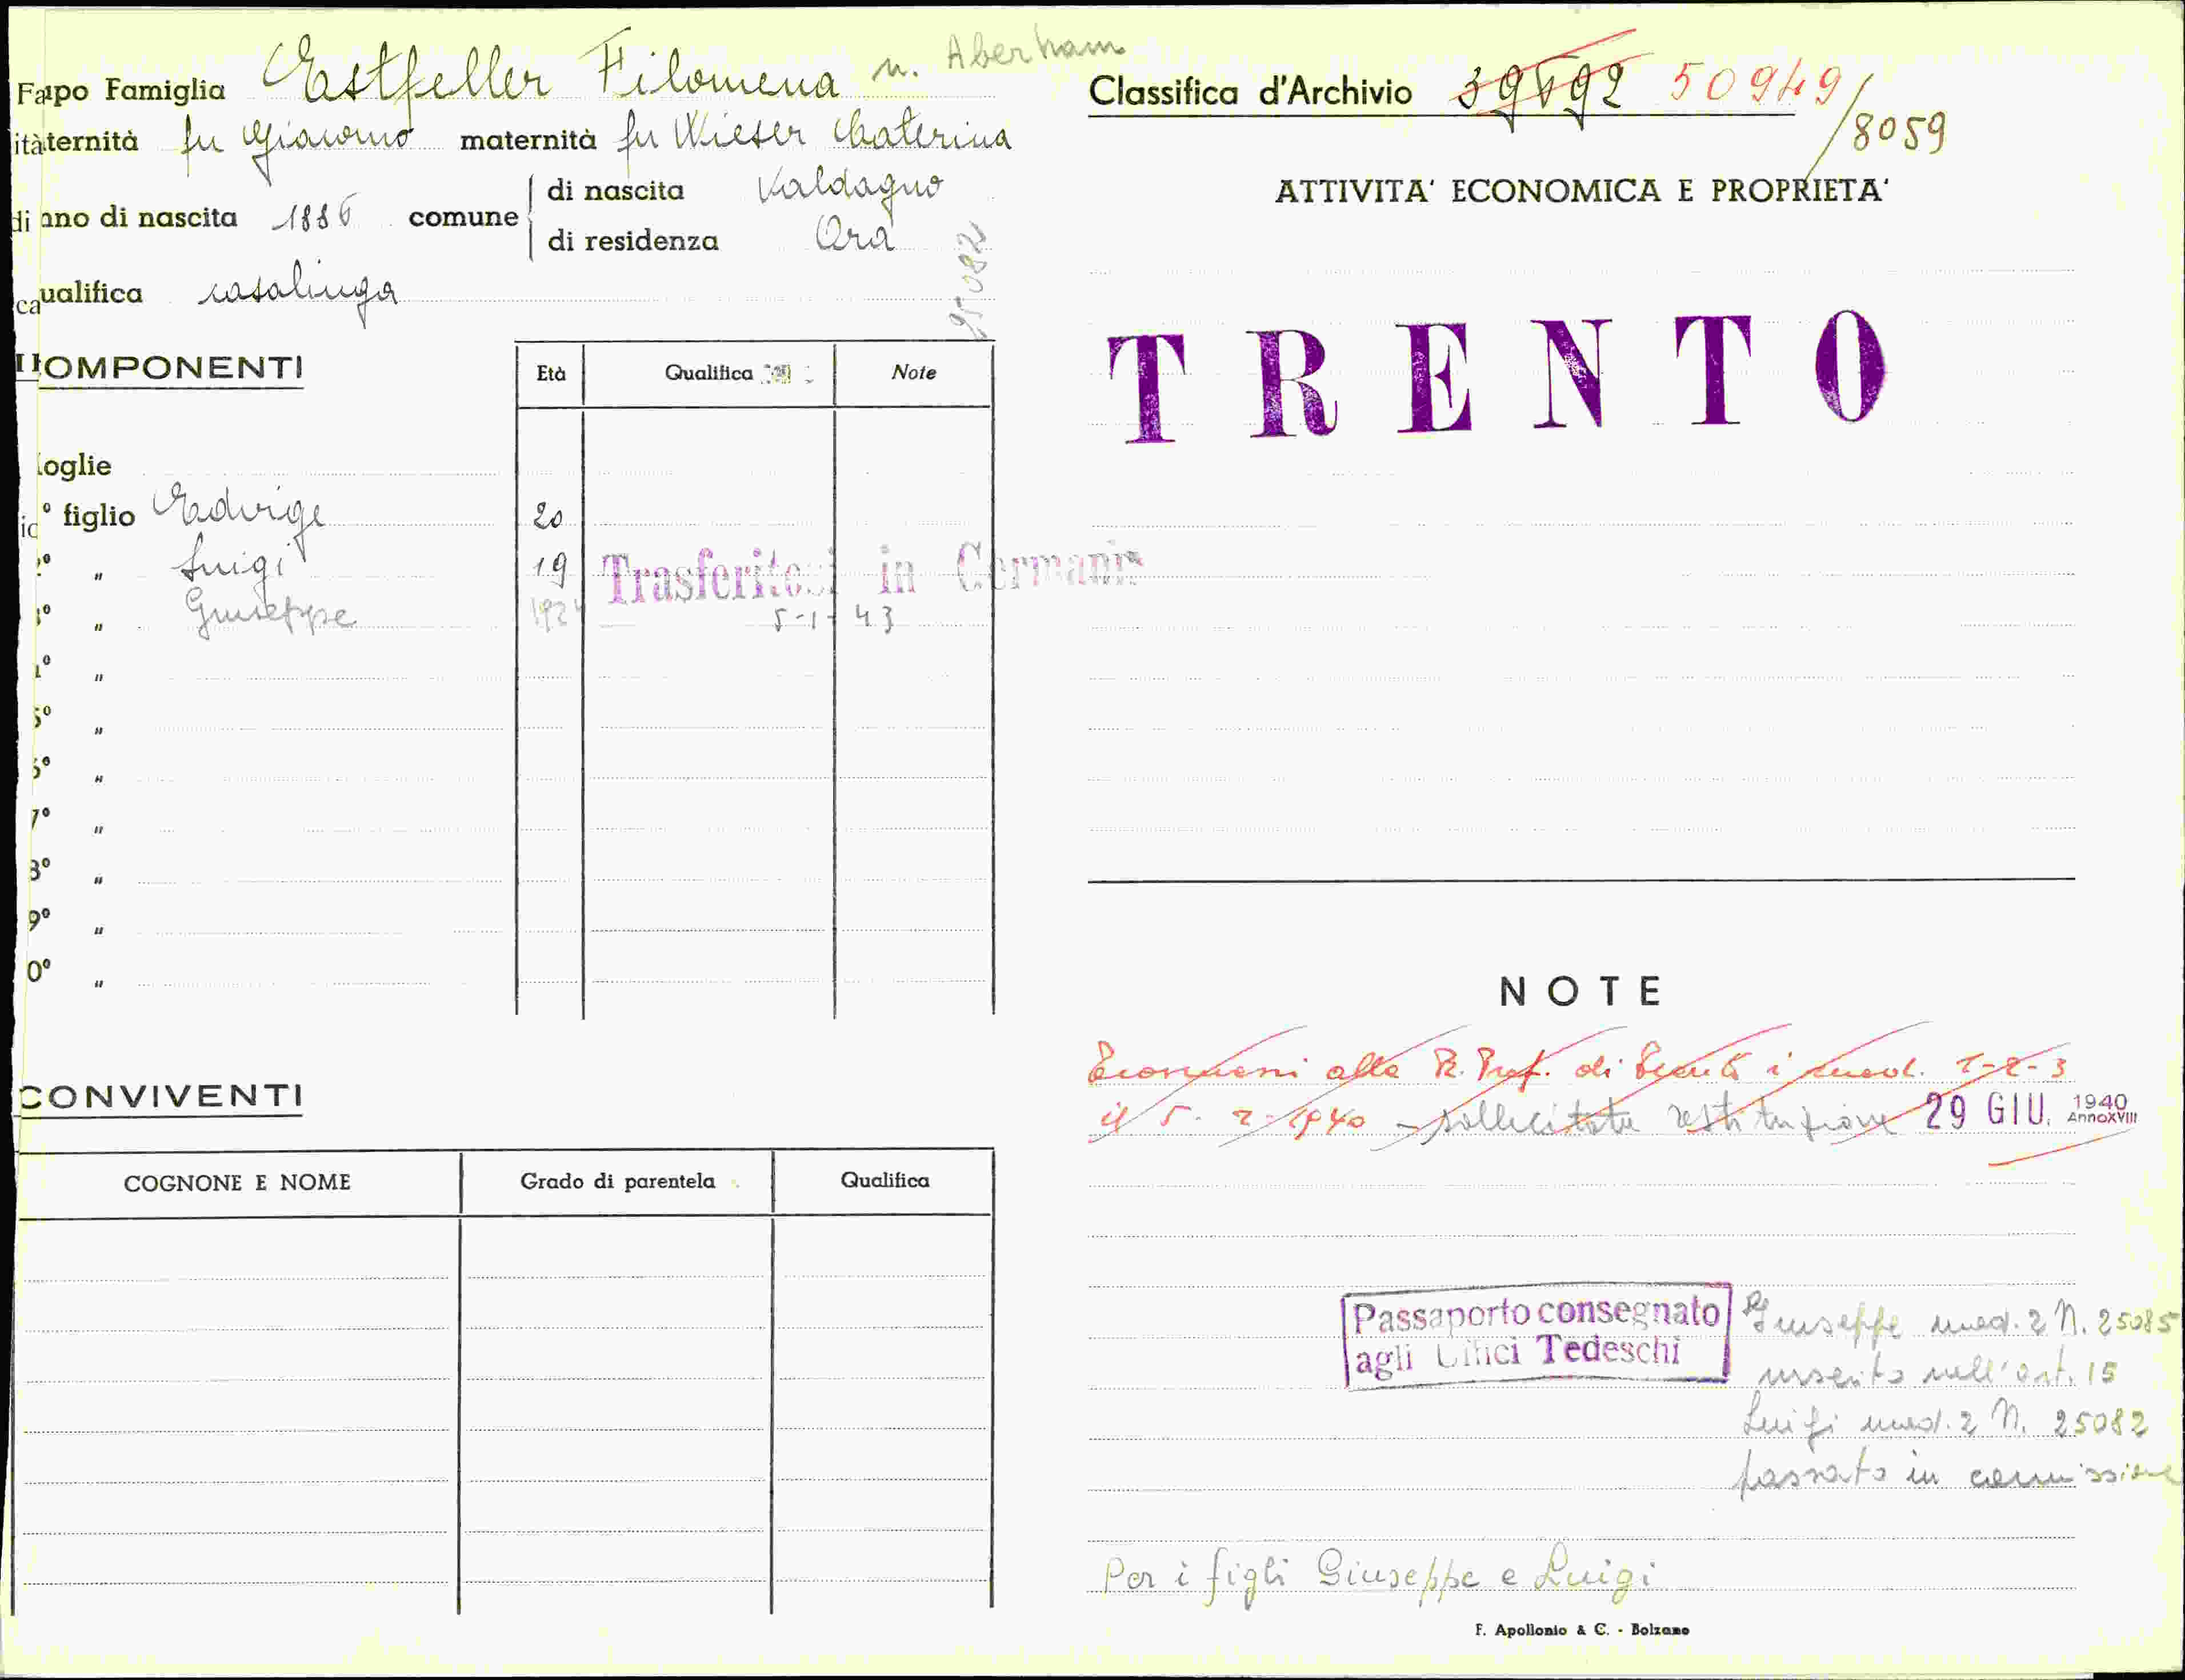 Capo Famiglia Estfeller Filomena n. Aberham
paternità fu Giacomo maternità fu Wieser Caterina
anno di nascita 1886 comune di nascita Valdagno
di residenza Ora
qualifica casalinga
25082
COMPONENTI Età Qualifica Note
moglie
1º figlio Edvige 20
2º " Luigi 19 Trasferitosi in Germania
3º " Giuseppe 1924 5-1-43
4º "
5º "
6º "
7º "
8º "
9º "
10º "
CONVIVENTI
COGNONE E NOME Grado di parentela Qualifica
Classifica d'Archivio 50949
/8059
ATTIVITA' ECONOMICA E PROPRIETA'
TRENTO
NOTE
alla R. Pref. di i mod. 1-2-3
il 5-2-1940 - sollecitata restituzione 29 GIU. 1940 AnnoXVIII
Passaporto consegnato
agli Uffici Tedeschi
Giuseppe mod. 2 N. 25085
inserito nell'ost. 15
Luigi mod. 2 N. 25082
passato in commissione
Per i figli Giuseppe e Luigi
F. Apollonio & C. - Bolzano